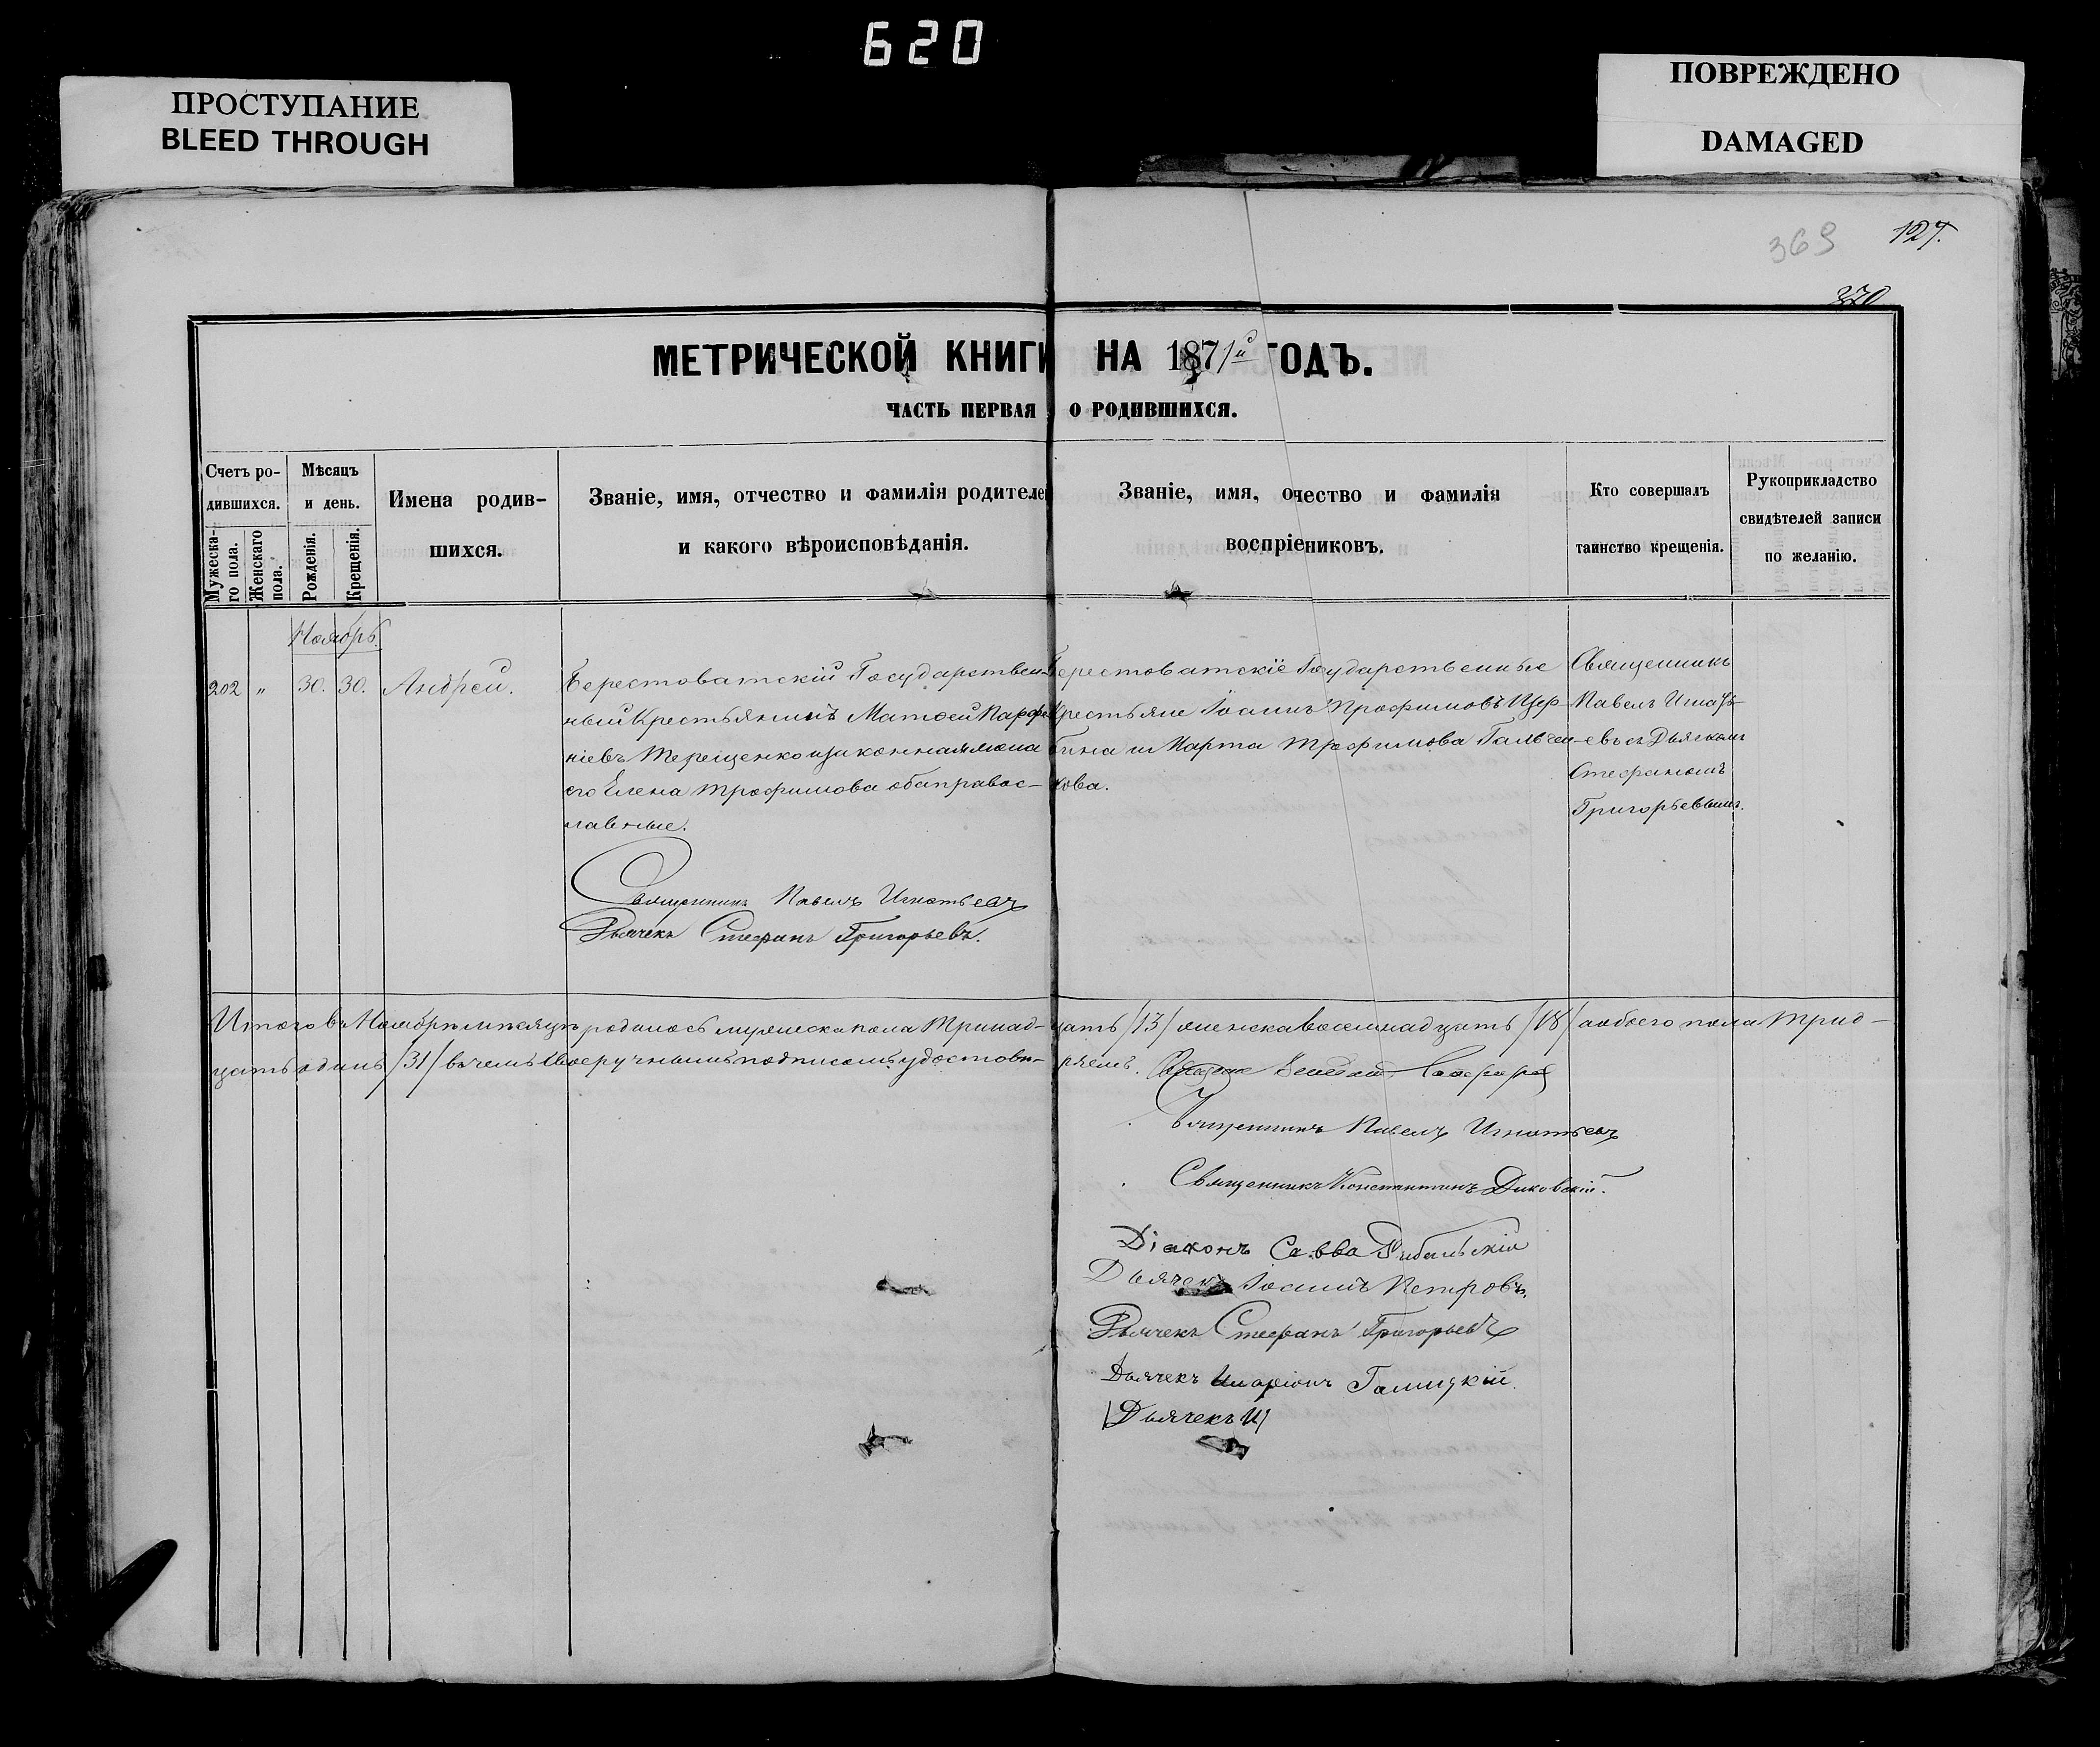 620
ПРОСТУПАНИЕ
BLEED THROUGH
ПОВРЕЖДЕНО
DAMAGED
369
127.
370
МЕТРИЧЕСКОЙ КНИГИ НА 1871й ГОДЪ.
ЧАСТЬ ПЕРВАЯ О РОДИВШИХСЯ.
Счетъ ро-
дившихся.
Мужеска-
го пола.
Женскаго
пола.
Мѣсяцъ
и день.
Рожденія.
Крещенія.
Имена родив-
шихся.
Званіе, имя, отчество и фамилія родителей
и какого вѣроисповѣданія.
Званіе, имя, очество и фамилія
воспріениковъ.
Кто совершалъ
таинство крещенія.
Рукоприкладство
свидѣтелей записи
по желанію.
Ноябрь.
202 „ 30. 30. Андрей.
Берестоватскій Государствен-
ный Крестьянинъ Матѳей Парфе-
ніевъ Терещенко и законная жена
его Елена Трофимова оба правос-
лавные.
Священникъ Павелъ Игнатьевъ
Дьячекъ Стефанъ Григорьевъ.
Берестоватскіе Государственные
Крестьяне Іоаннъ Трофимовъ Щер-
бина и Марта Трофимова Гальчен-
кова.
Священникъ
Павелъ Игнать-
евъ съ Дьячкомъ
Стефаномъ
Григорьевымъ.
Итого въ Ноябрѣ мѣсяцѣ родилось мужеска пола Тринад- цать /13/ женска восемнадцать /18/ а обоего пола Трид-
цать одинъ /31/ въ чемъ своеручнымъ подписомъ удостовѣ- ряемъ.
Священникъ Павелъ Игнатьевъ
Священникъ Константинъ Диковскій.
Діаконъ Савва Рыбальскій
Дьячекъ Іоаннъ Петровъ.
Дьячекъ Стефанъ Григорьевъ
Дьячекъ Иларіонъ Галицкій.
/Дьячекъ И/